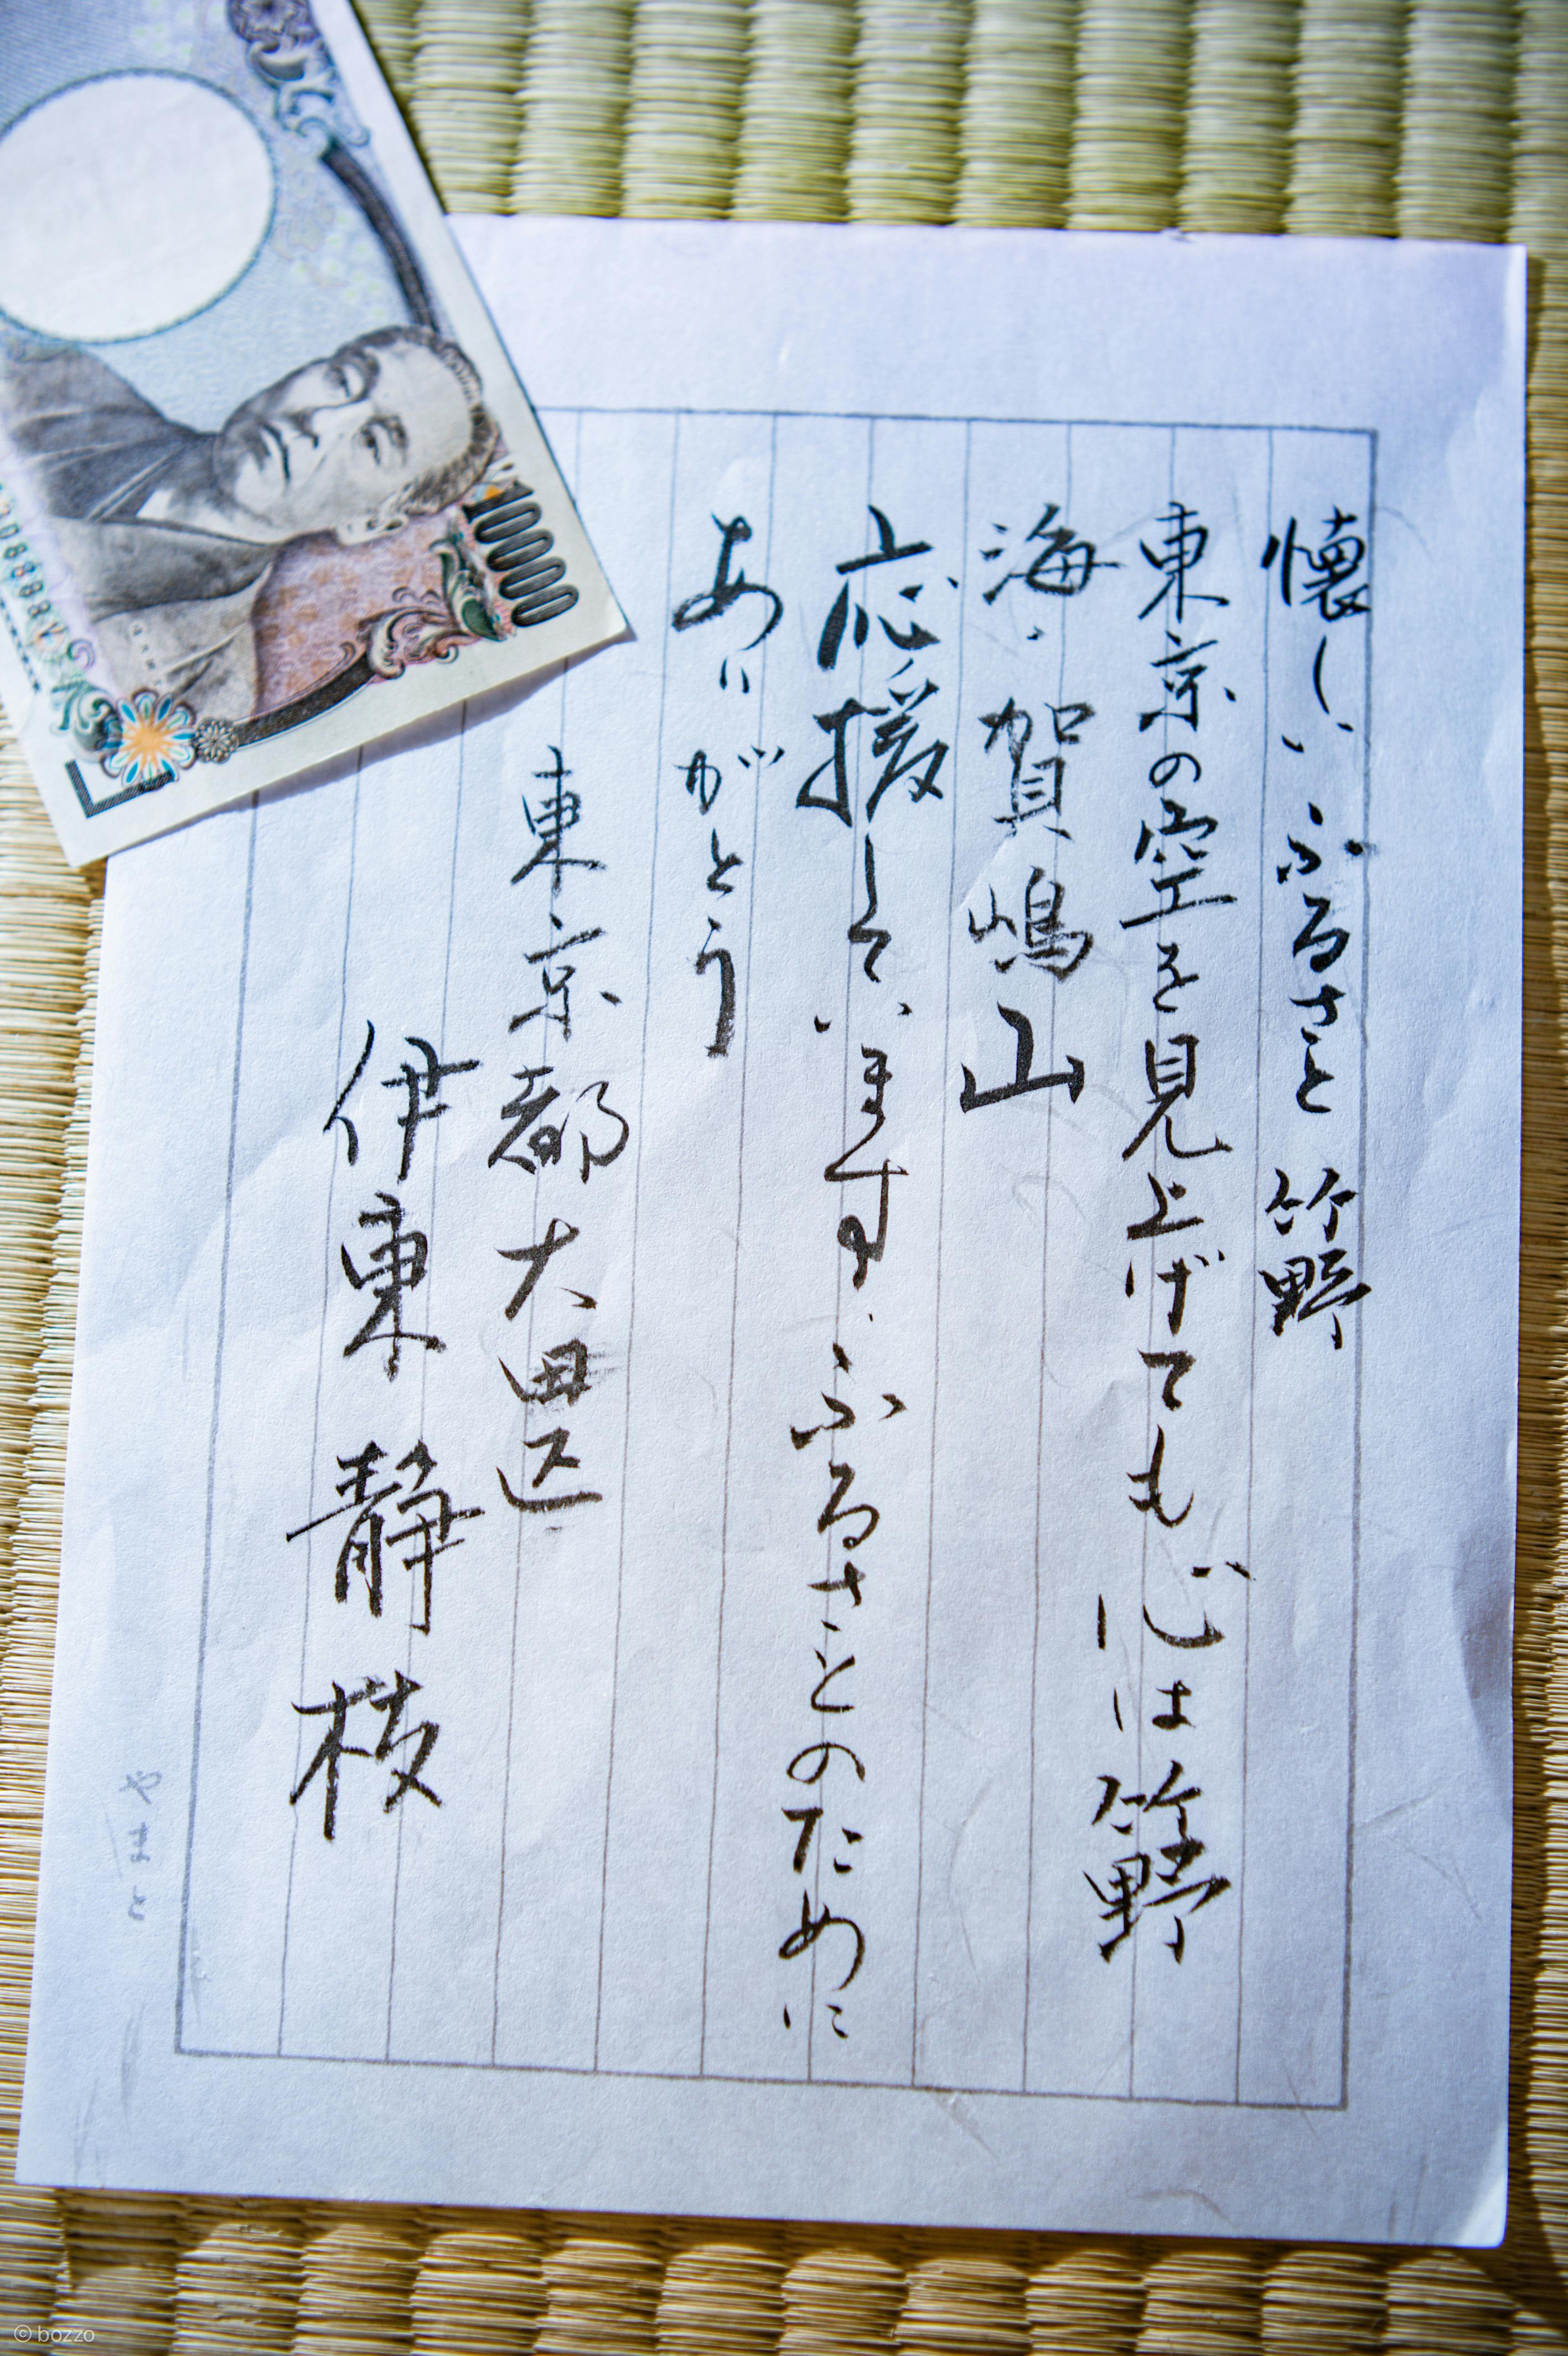 懐しいふるさと 竹野
東京の空を見上げても心は竹野
海・賀嶋山
応援しています。ふるさとのために
ありがとう
東京都大田区
伊東 静枝
10000
© bozzo